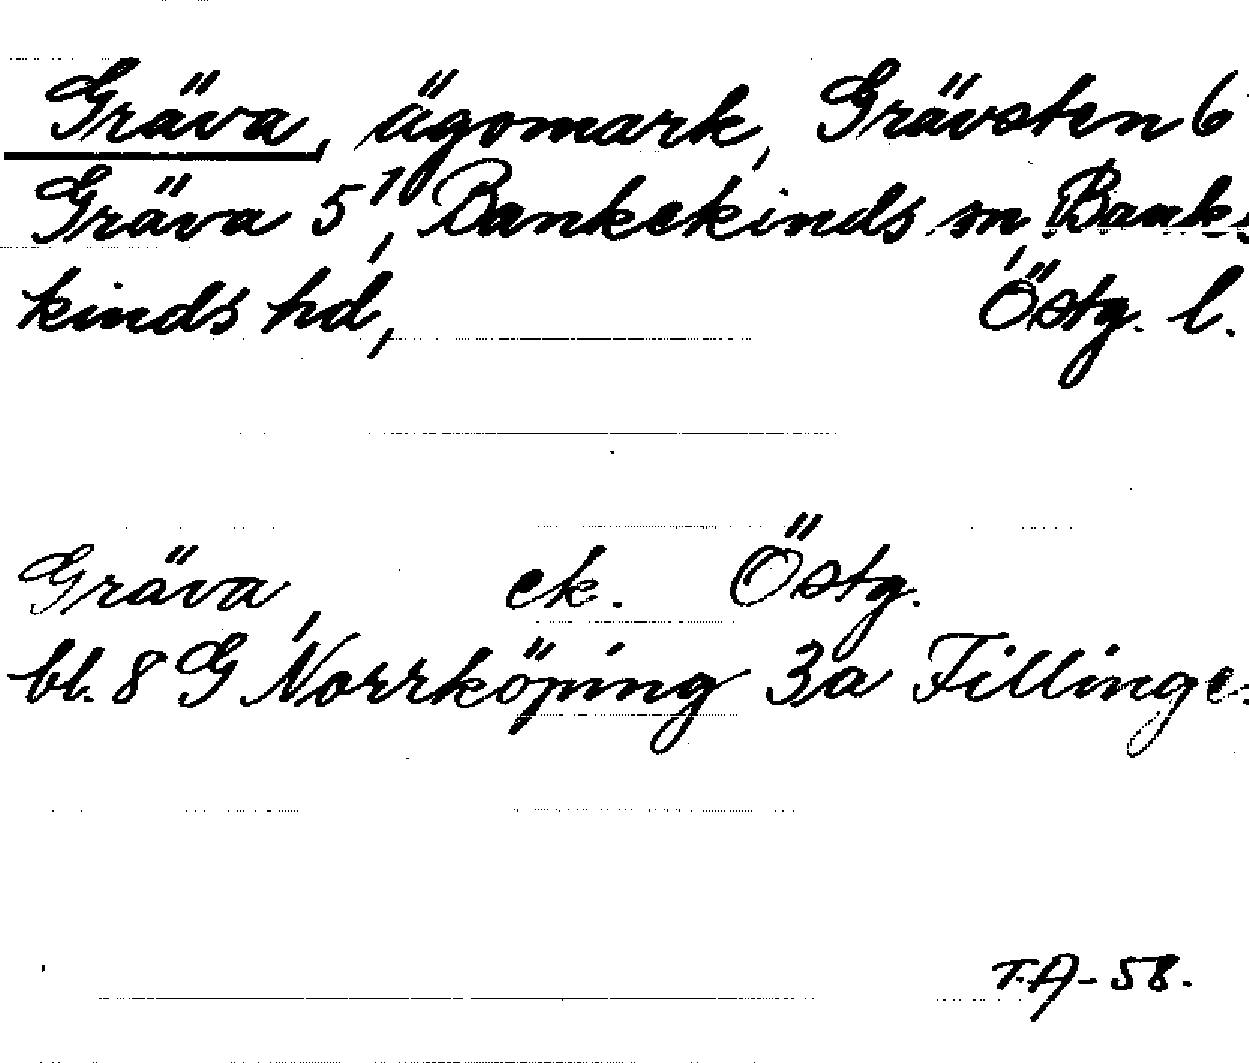 Gräva, ägomark, Grävsten 6
Gräva 5¹, Bankekinds sn, Bank-
kinds hd, Östg. l.
Gräva, ek. Östg.
bl. 8 G Norrköping 3a Fillinge.
T.A-58.